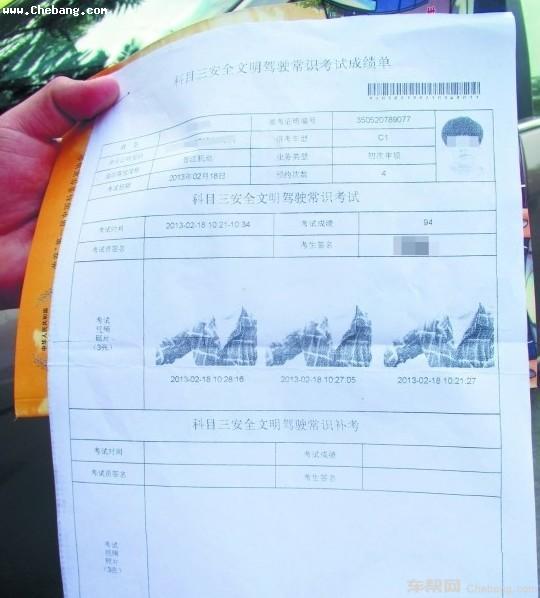 www.Chebang.com
科目三安全文明驾驶常识考试成绩单
姓名
准考证明编号 350520789077
报考车型 C1
晋江机动 业务类型 初次申领
考试日期 2013年02月18日 预约次数 4
科目三安全文明驾驶常识考试
考试时间 2013-02-18 10:21-10:34 考试成绩 94
考试员签名 考生签名
考试
视频
照片
(3张)
2013-02-18 10:28:16 2013-02-18 10:27:05 2013-02-18 10:21:27
科目三安全文明驾驶常识补考
考试时间 考试成绩
考试员签名 考生签名
考试
视频
照片
(3张)
中华人民共和国
车帮网 Chebang.com